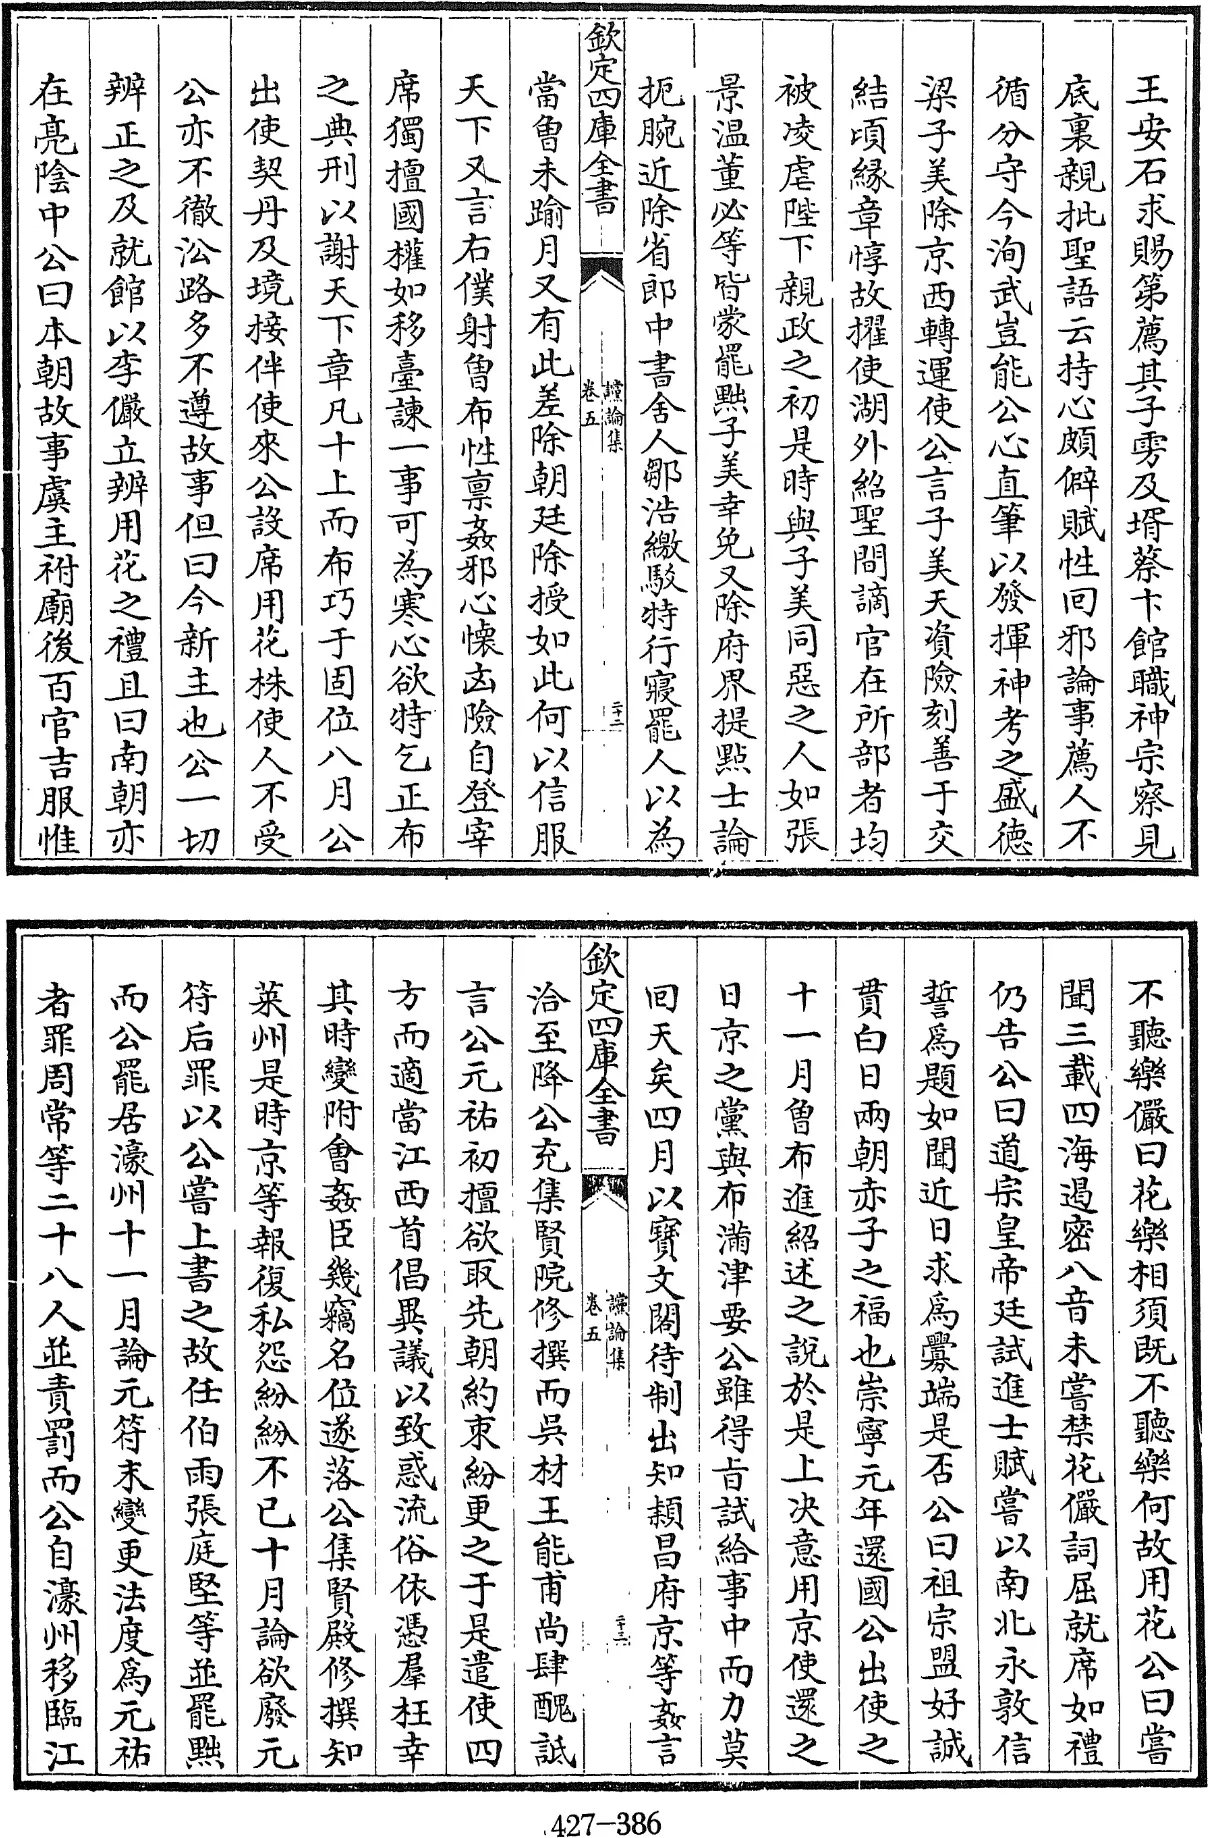 王安石求賜第薦其子雱及壻蔡卞館職神宗察見
底裏親批聖語云持心頗僻賦性回邪論事薦人不
循分守今洵武豈能公心直筆以發揮神考之盛德
梁子美除京西轉運使公言子美天資險刻善于交
結頃緣章惇故擢使湖外紹聖間謫官在所部者均
被凌虐陛下親政之初是時與子美同惡之人如張
景温董必等皆蒙罷黜子美幸免又除府界提點士論
扼腕近除省郎中書舍人鄒浩繳駁特行寢罷人以為
欽定四庫全書
讜論集
卷五
二十二
當曾未踰月又有此差除朝廷除授如此何以信服
天下又言右僕射曾布性禀姦邪心懐凶險自登宰
席獨擅國權如移臺諫一事可為寒心欲特乞正布
之典刑以謝天下章凡十上而布巧于固位八月公
出使契丹及境接伴使來公設席用花株使人不受
公亦不徹㳂路多不遵故事但曰今新主也公一切
辨正之及就館以李儼立辨用花之禮且曰南朝亦
在亮陰中公曰本朝故事虞主祔廟後百官吉服惟
不聽樂儼曰花樂相須既不聽樂何故用花公曰嘗
聞三載四海遏密八音未嘗禁花儼詞屈就席如禮
仍告公曰道宗皇帝廷試進士賦嘗以南北永敦信
誓爲題如聞近日求爲釁端是否公曰祖宗盟好誠
貫白日兩朝赤子之福也崇寧元年還國公出使之
十一月曾布進紹述之說於是上决意用京使還之
日京之黨與布滿津要公雖得旨試給事中而力莫
囘天矣四月以寶文閣待制出知頴昌府京等姦言
欽定四庫全書
讜論集
卷五
二十三
洽至降公充集賢院修撰而吳材王能甫尚肆醜詆
言公元祐初擅欲取先朝約束紛更之于是遣使四
方而適當江西首倡異議以致惑流俗依憑羣枉幸
其時變附會姦臣幾竊名位遂落公集賢殿修撰知
萊州是時京等報復私怨紛紛不已十月論欲廢元
符后罪以公嘗上書之故任伯雨張庭堅等並罷黜
而公罷居濠州十一月論元符末變更法度爲元祐
者罪周常等二十八人並責罰而公自濠州移臨江
427-386